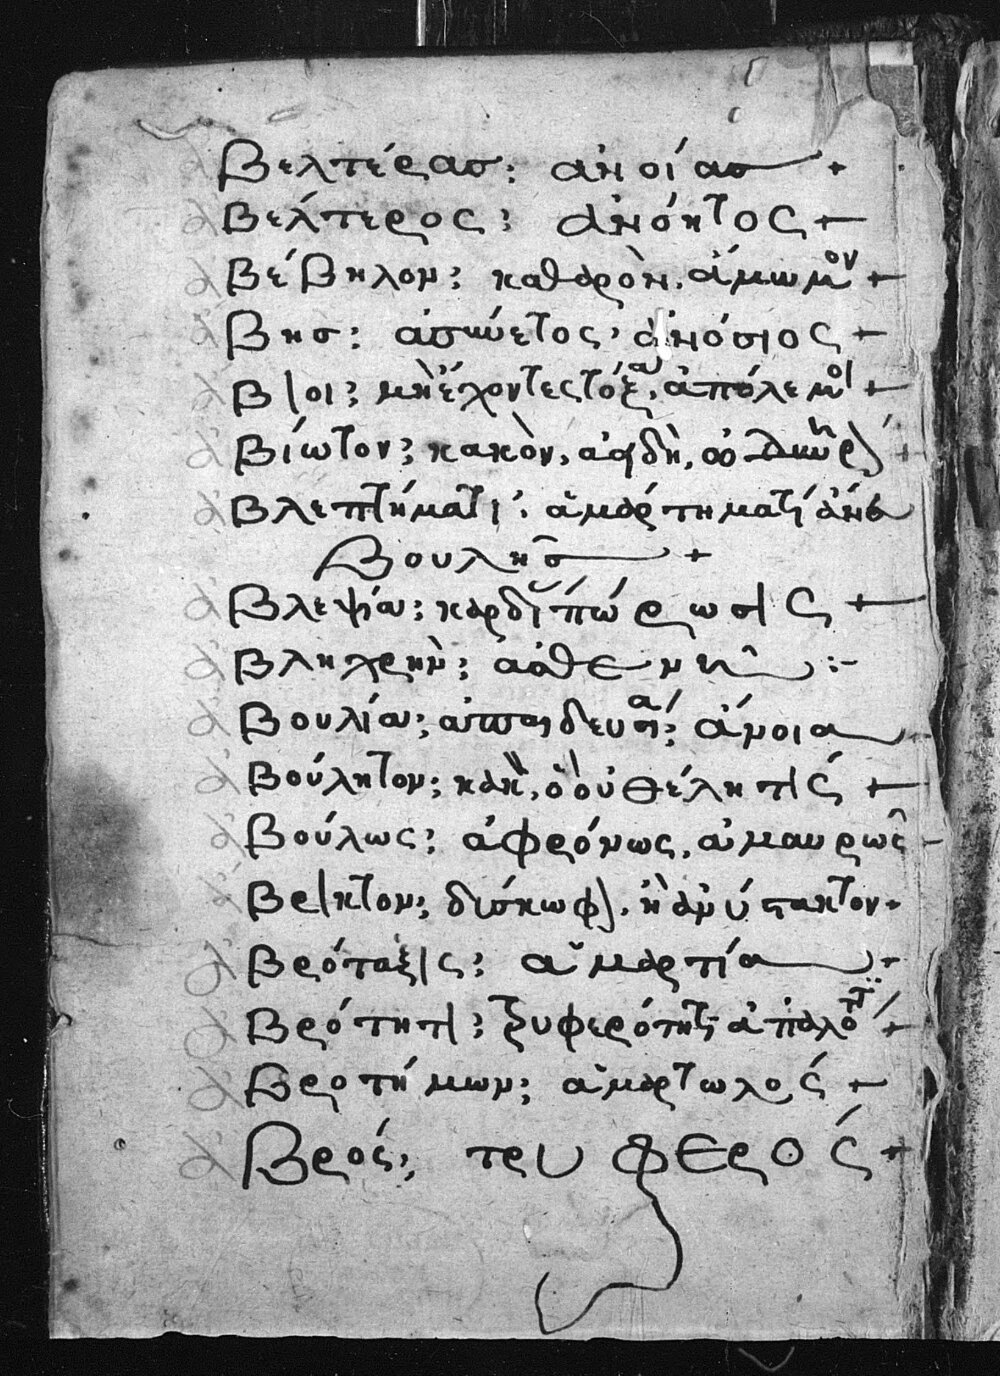 ἀ Βελτέρασ: ἀνοίασ +
ἀ Βέλτερος: ἀνόητος +
ἀ Βέβηλον: καθαρὸν, ἄμωμον +
ἀ Βησ: ἀσύνετος, ἀνόσιος +
ἀ Βιοι: μὴ ἔχοντες τόξα, ἀπόλεμοι +
ἀ Βίωτον: κακὸν, ἀηδὴ,
ἀ Βλεπτήματι: ἁμαρτήματι ἄνευ
Βουλησ +
ἀ Βλεψία: καρδι πώρωσις +
ἀ Βληχρὴν: ἀσθενῆ :-
ἀ Βουλία: ἀπαιδευσία: ἄνοια
ἀ Βούλητον: κακ, ὃ οὐ θέλη τίς +
ἀ Βούλως: ἀφρόνως, ἀμαυρῶς -
ἀ Βρικτον: δύσκωφ, ἢ ἀνύπακτον
ἀ Βρόταξις: ἁμαρτία
ἀ Βρότητι: τρυφερότητι ἁπαλότητι +
ἀ Βροτήμων: ἁμαρτωλός +
ἀ Βρός: τρυφερός +